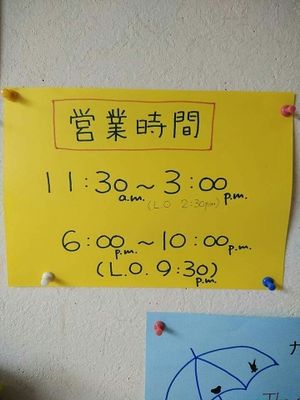 営業時間
11:30～3:00
a.m. (L.O. 2:30pm) p.m.
6:00～10:00
p.m. p.m.
(L.O. 9:30)
p.m.